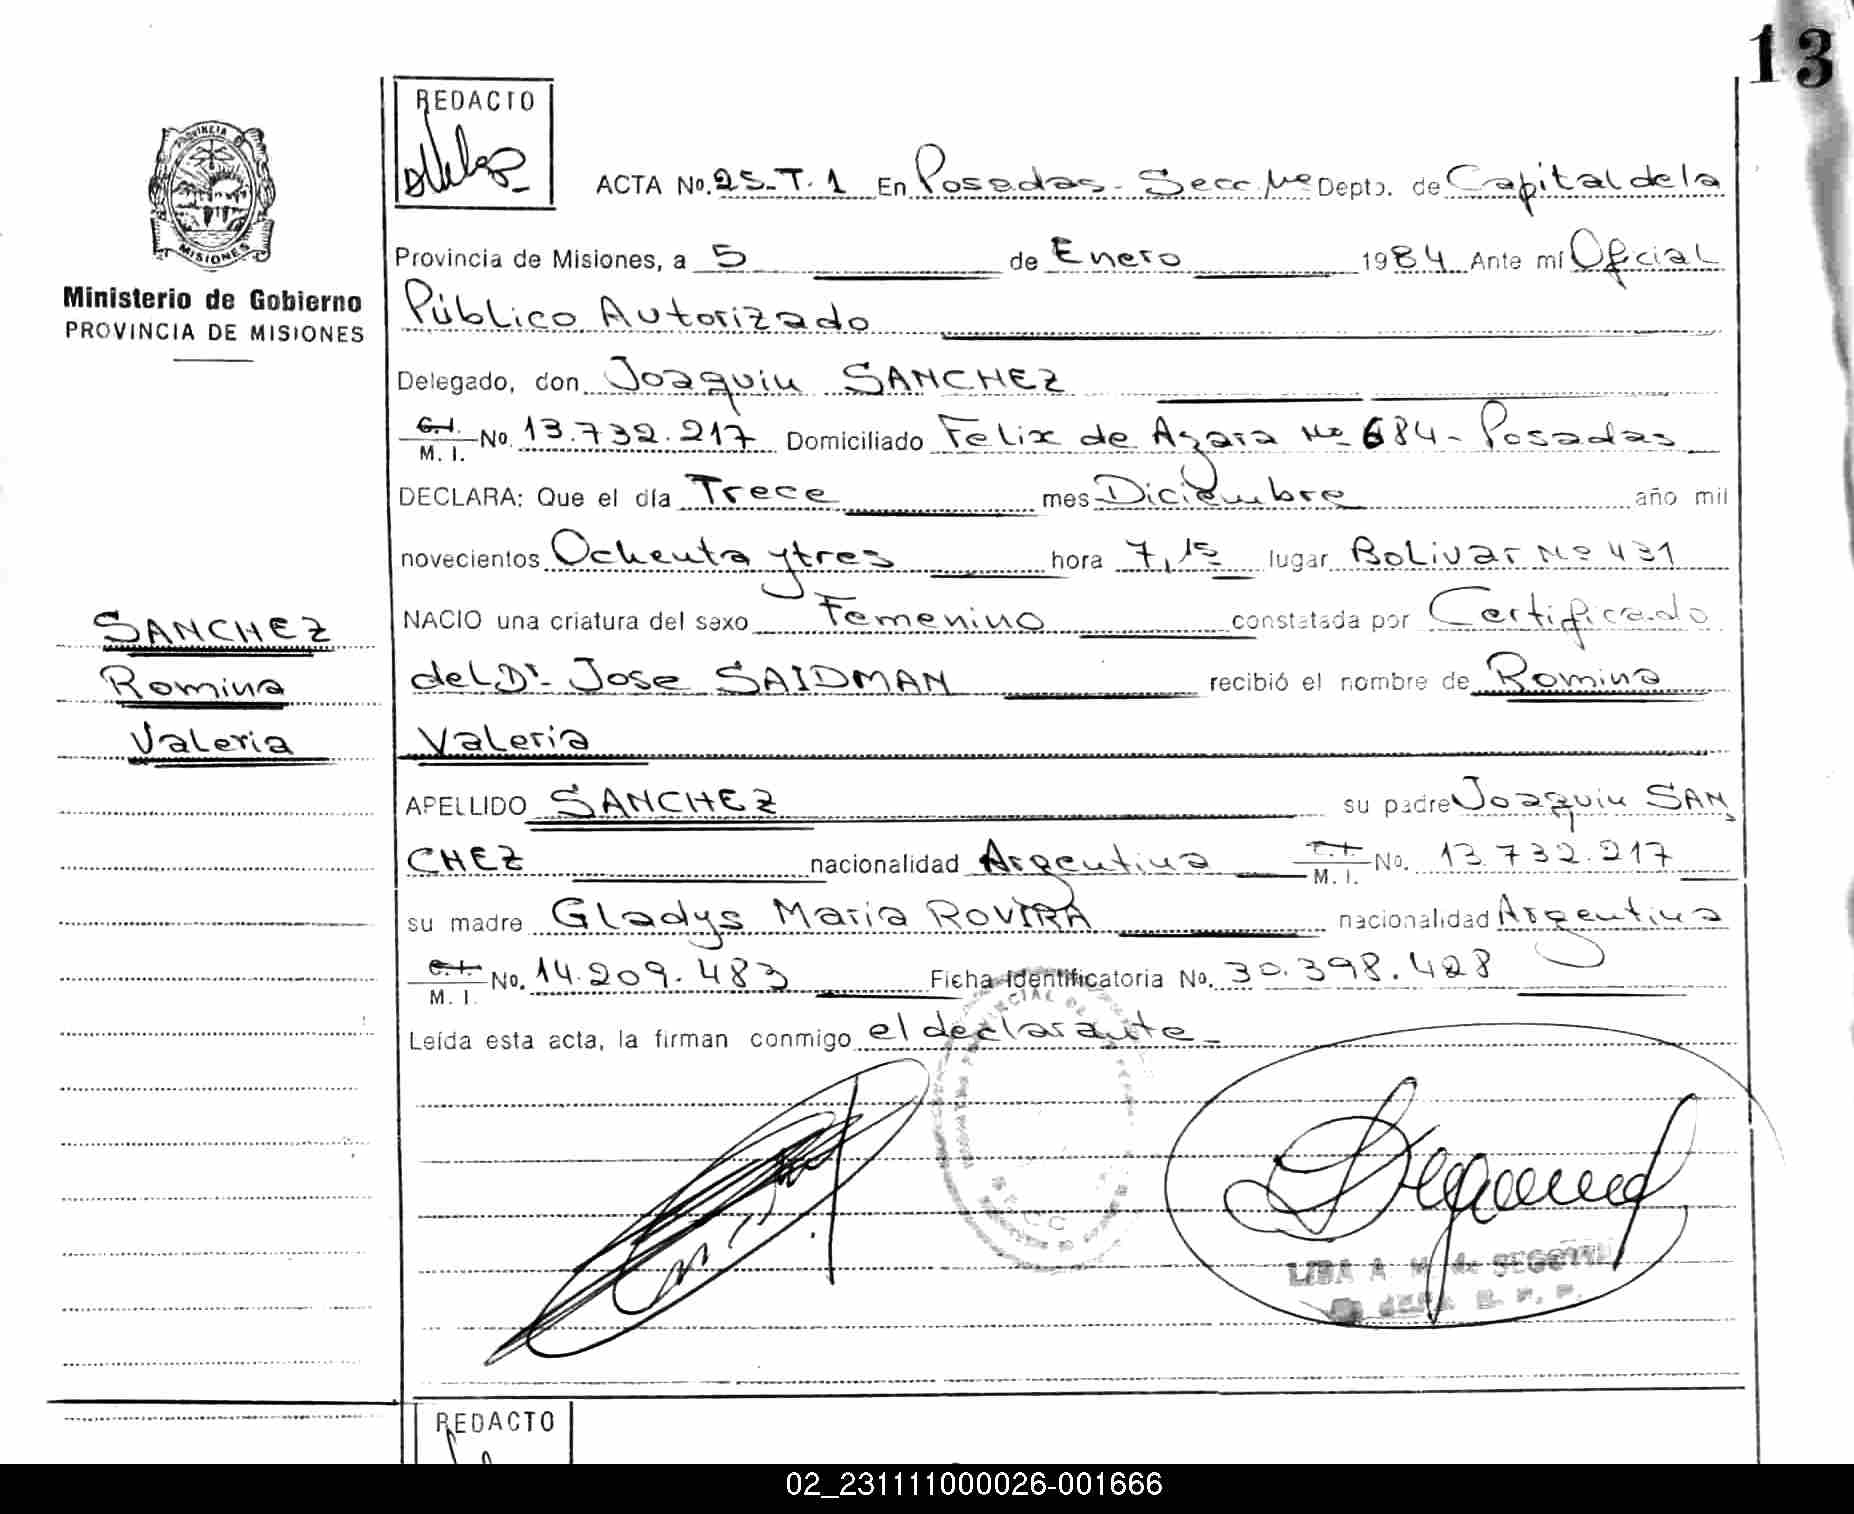 13
REDACTO
PROVINCIA DE
MISIONES
Ministerio de Gobierno
PROVINCIA DE MISIONES
ACTA No. 25-T.1 En Posadas - Secc. Nº Depto. de Capital de la
Provincia de Misiones, a 5 de Enero 1984 Ante mí Oficial
Público Autorizado
Delegado, don Joaquin SANCHEZ
C.I. M. I. No. 13.732.217 Domiciliado Felix de Azara Nº 684 - Posadas
DECLARA: Que el día Trece mes Diciembre año mil
novecientos Ochenta y tres hora 7,15 lugar Bolivar Nº 431
NACIO una criatura del sexo Femenino constatada por Certificado
del Dr. Jose SAIDMAN recibió el nombre de Romina
Valeria
SANCHEZ
Romina
Valeria
APELLIDO SANCHEZ su padre Joaquin SAN
CHEZ nacionalidad Argentina C.I. M. I. No. 13.732.217
su madre Gladys Maria ROVIRA nacionalidad Argentina
C.I. M. I. No. 14.209.483 Ficha Identificatoria No. 30.398.428
Leída esta acta, la firman conmigo el declarante
LIBA A. M. de SEGOVIA
REDACTO
02_231111000026-001666